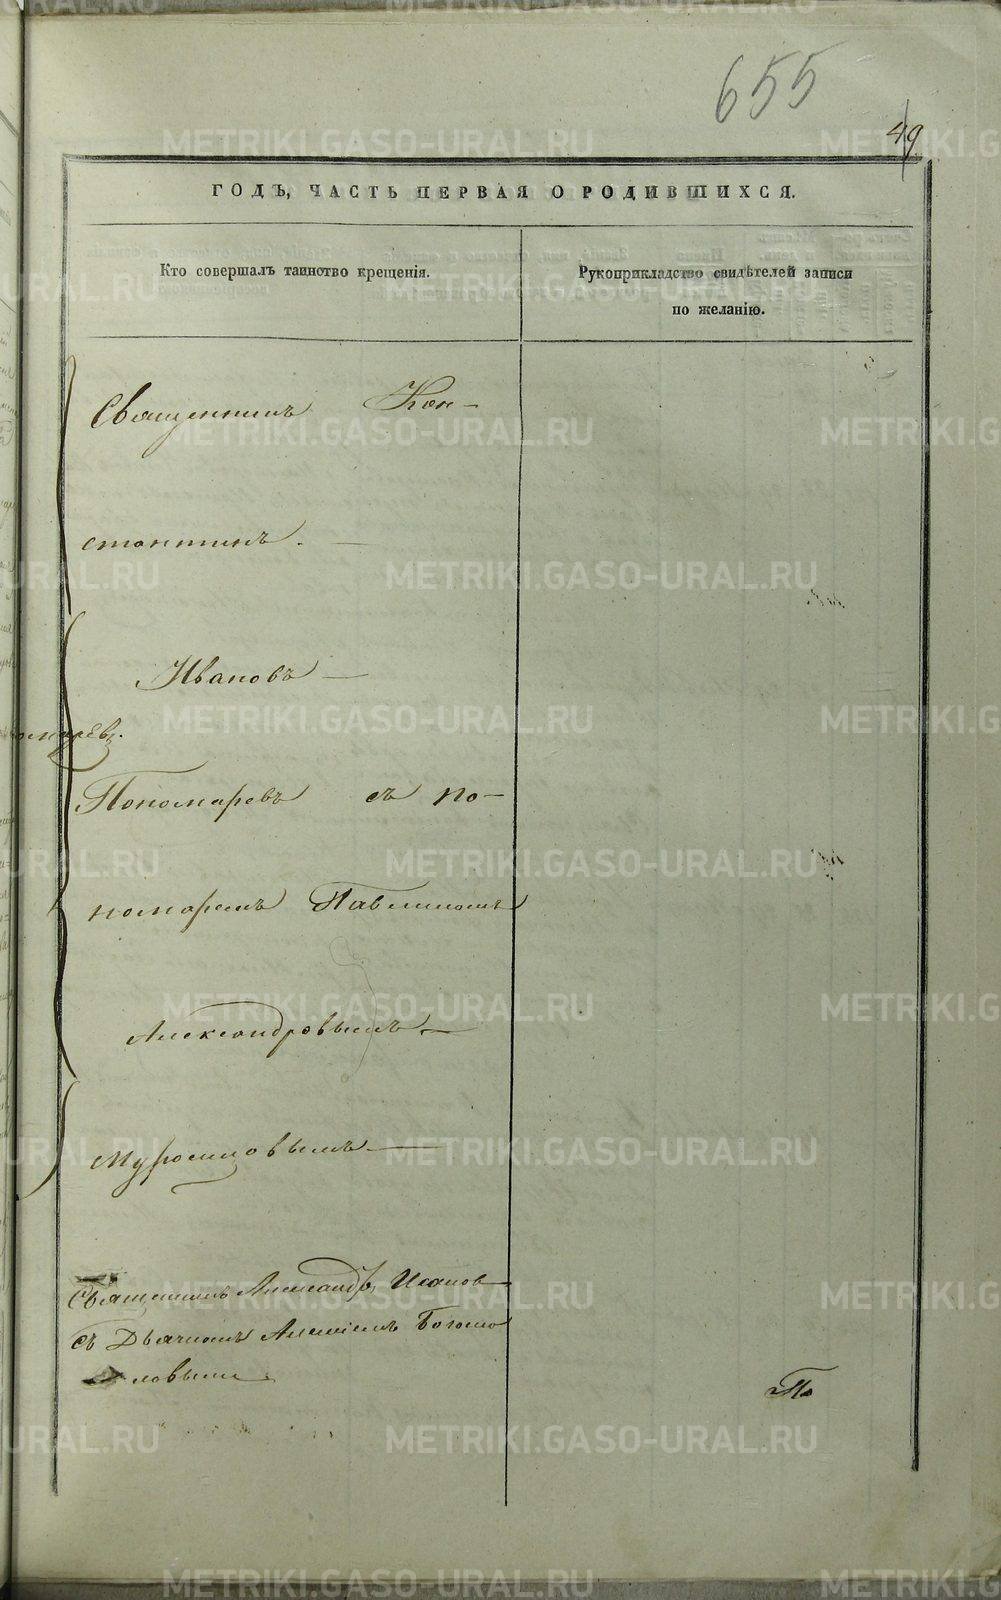 655
49
ГОДЪ, ЧАСТЬ ПЕРВАЯ О РОДИВШИХСЯ.
Кто совершалъ таинство крещенія.
Рукоприкладство свидѣтелей записи
по желанію.
Священникъ Кон-
стантинъ. —
Ивановъ —
Пономаревъ съ по-
номаремъ Павлиномъ
Александровымъ —
Муромцовымъ —
Священникъ Александръ Исаков
съ Дьячкомъ Алексіемъ Богосло
ловымъ.
По
METRIKI.GASO-URAL.RU